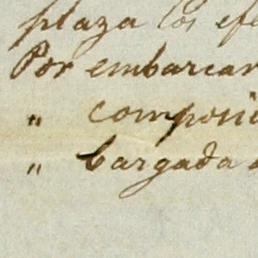 plaza los efe
Por embarcar
" composi
" Cargada a